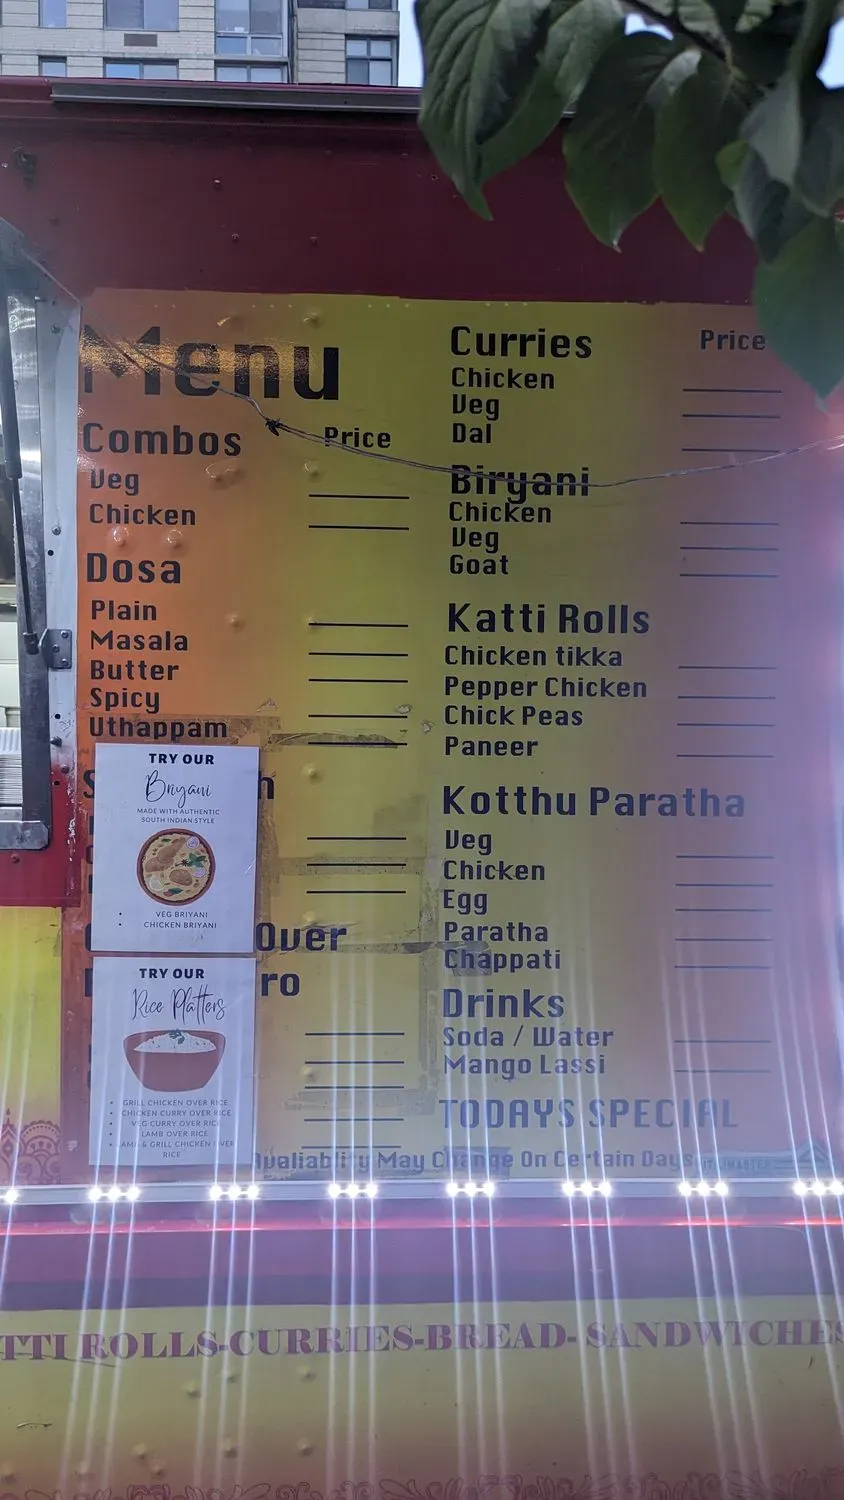 Menu
Combos Price
Veg
Chicken
Dosa
Plain
Masala
Butter
Spicy
Uthappam
TRY OUR
Briyani
MADE WITH AUTHENTIC
SOUTH INDIAN STYLE
• VEG BRIYANI
• CHICKEN BRIYANI
Over
TRY OUR
Rice Platters
• GRILL CHICKEN OVER RICE
• CHICKEN CURRY OVER RICE
• VEG CURRY OVER RICE
• LAMB OVER RICE
• LAMB & GRILL CHICKEN OVER
RICE
Curries Price
Chicken
Veg
Dal
Biryani
Chicken
Veg
Goat
Katti Rolls
Chicken tikka
Pepper Chicken
Chick Peas
Paneer
Kotthu Paratha
Veg
Chicken
Egg
Paratha
Chappati
Drinks
Soda / Water
Mango Lassi
TODAYS SPECIAL
Avaliablity May Change On Certain Days
TTI ROLLS-CURRIES-BREAD- SANDWICHES